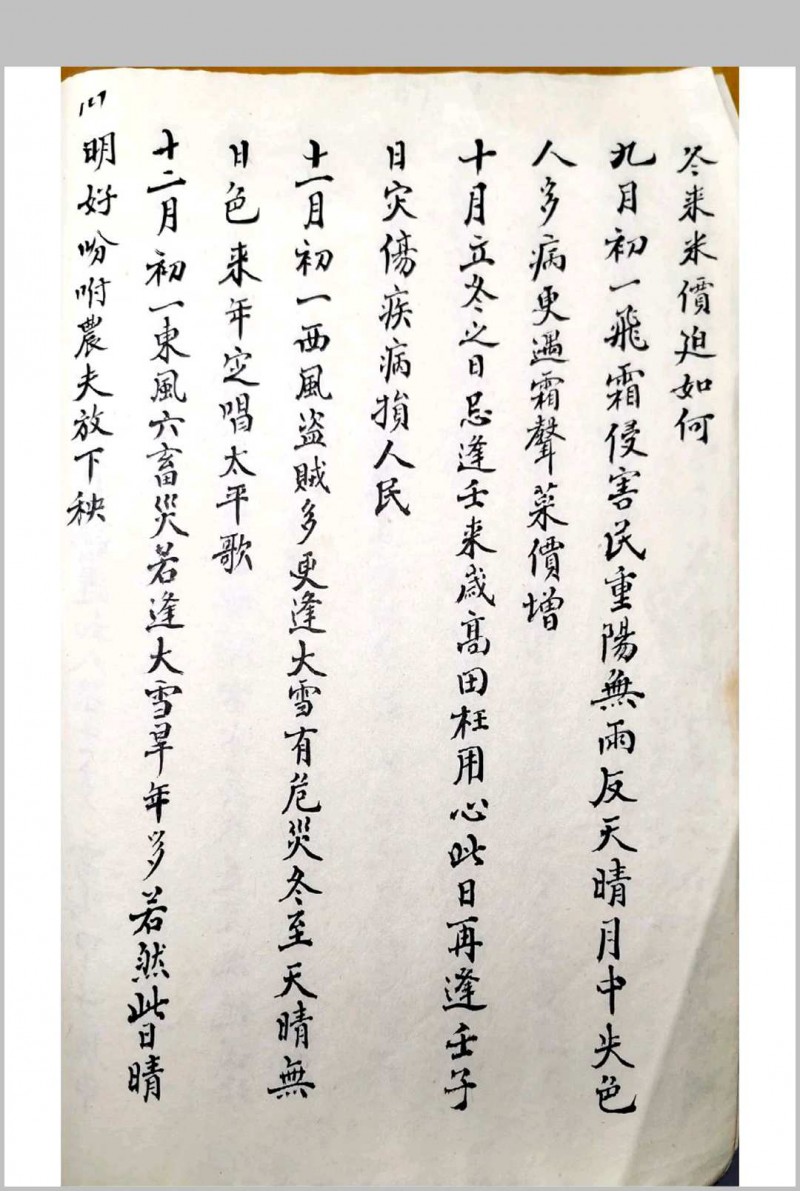 冬来米價迫如何
九月初一飛霜侵害民重陽無雨反天晴月中失色
人多病更遇霜聲菜價增
十月立冬之日忌逢壬来歲高田枉用心此日再逢壬子
日灾傷疾病損人民
十一月初一西風盗賊多更逢大雪有危災冬至天晴無
日色来年定唱太平歌
十二月初一東風六畜災若逢大雪旱年多若然此日晴
明好吩咐農夫放下秧